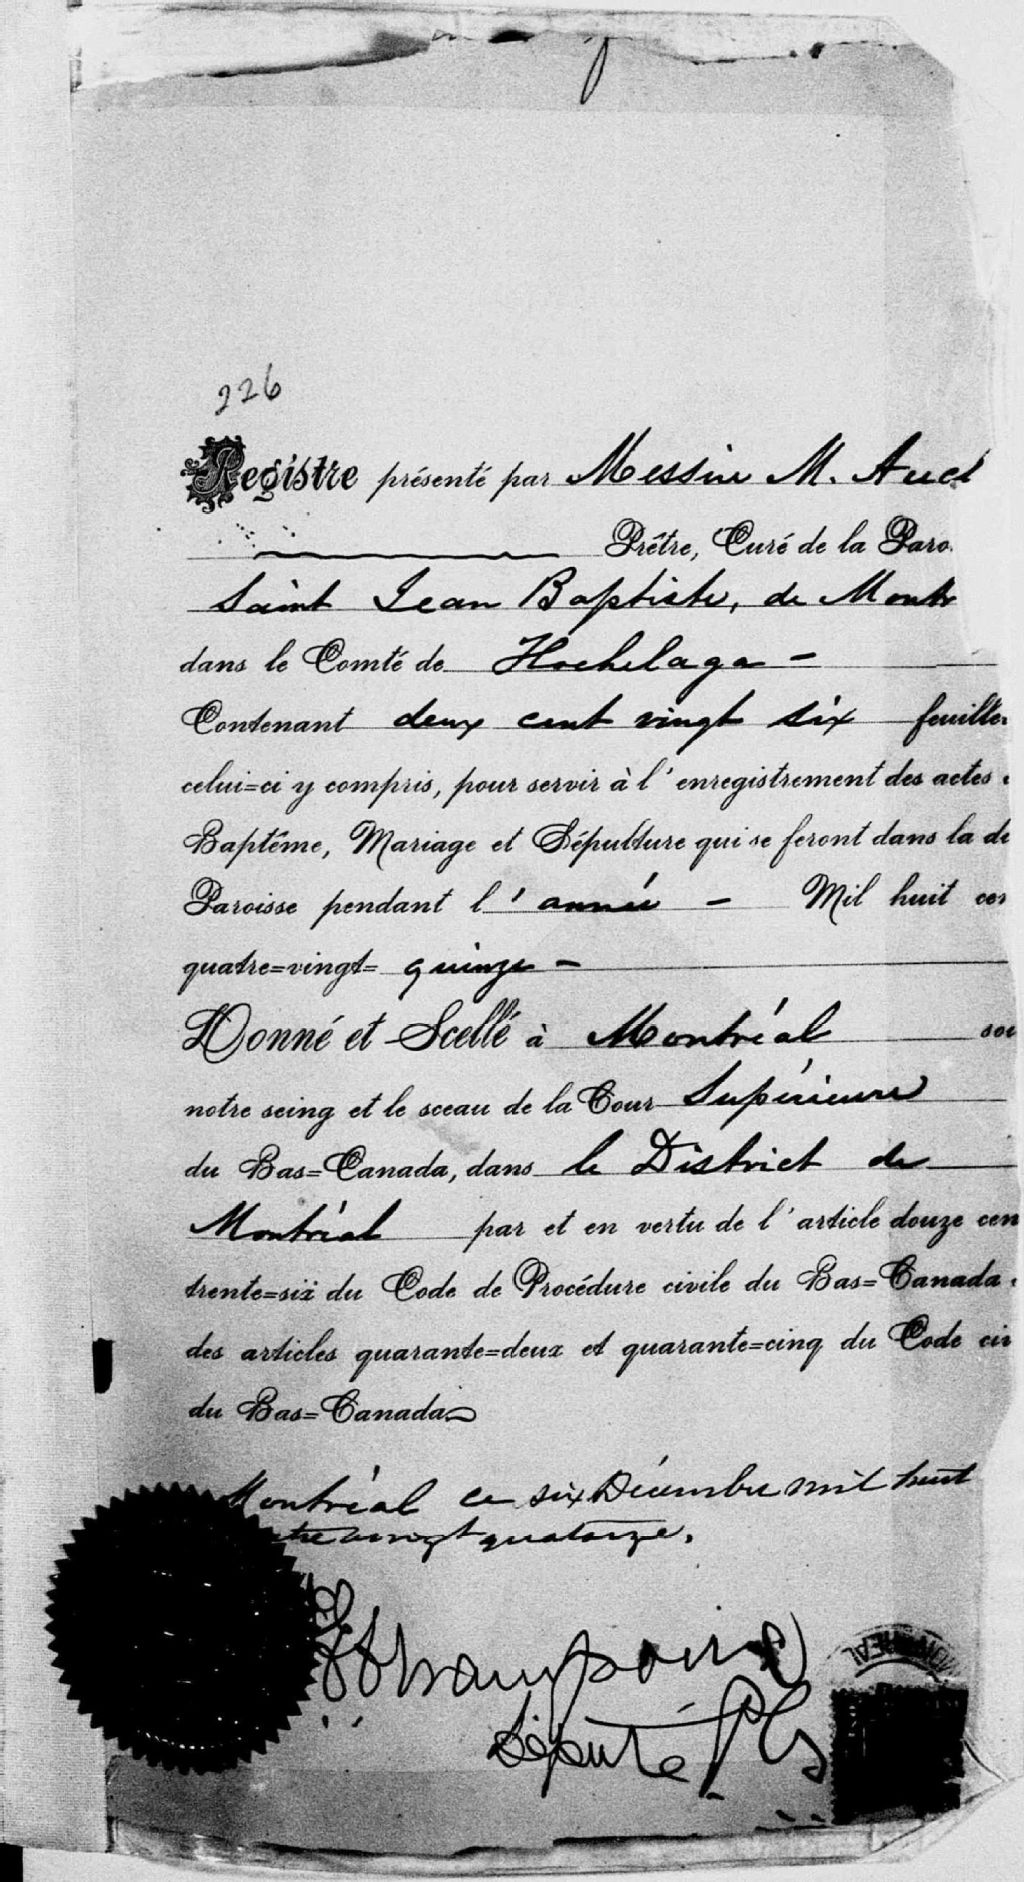 226
Registre présenté par Messire M. Aucl
Prêtre, Curé de la Paro
Saint Jean Baptiste, de Montr
dans le Comté de Hochelaga -
Contenant deux cent vingt six feuille
celui=ci y compris, pour servir à l'enregistrement des actes
Baptême, Mariage et Sépulture qui se feront dans la di
Paroisse pendant l'année - Mil huit cen
quatre=vingt= quinze -
Donné et Scellé à Montréal sou
notre seing et le sceau de la Cour Supérieure
du Bas=Canada, dans le District de
Montréal par et en vertu de l'article douze cen
trente=six du Code de Procédure civile du Bas=Canada
des articles quarante=deux et quarante=cinq du Code civ
du Bas=Canada
Montréal ce six Décembre mil huit
tre vingt quatorze.
Député
MONTREAL